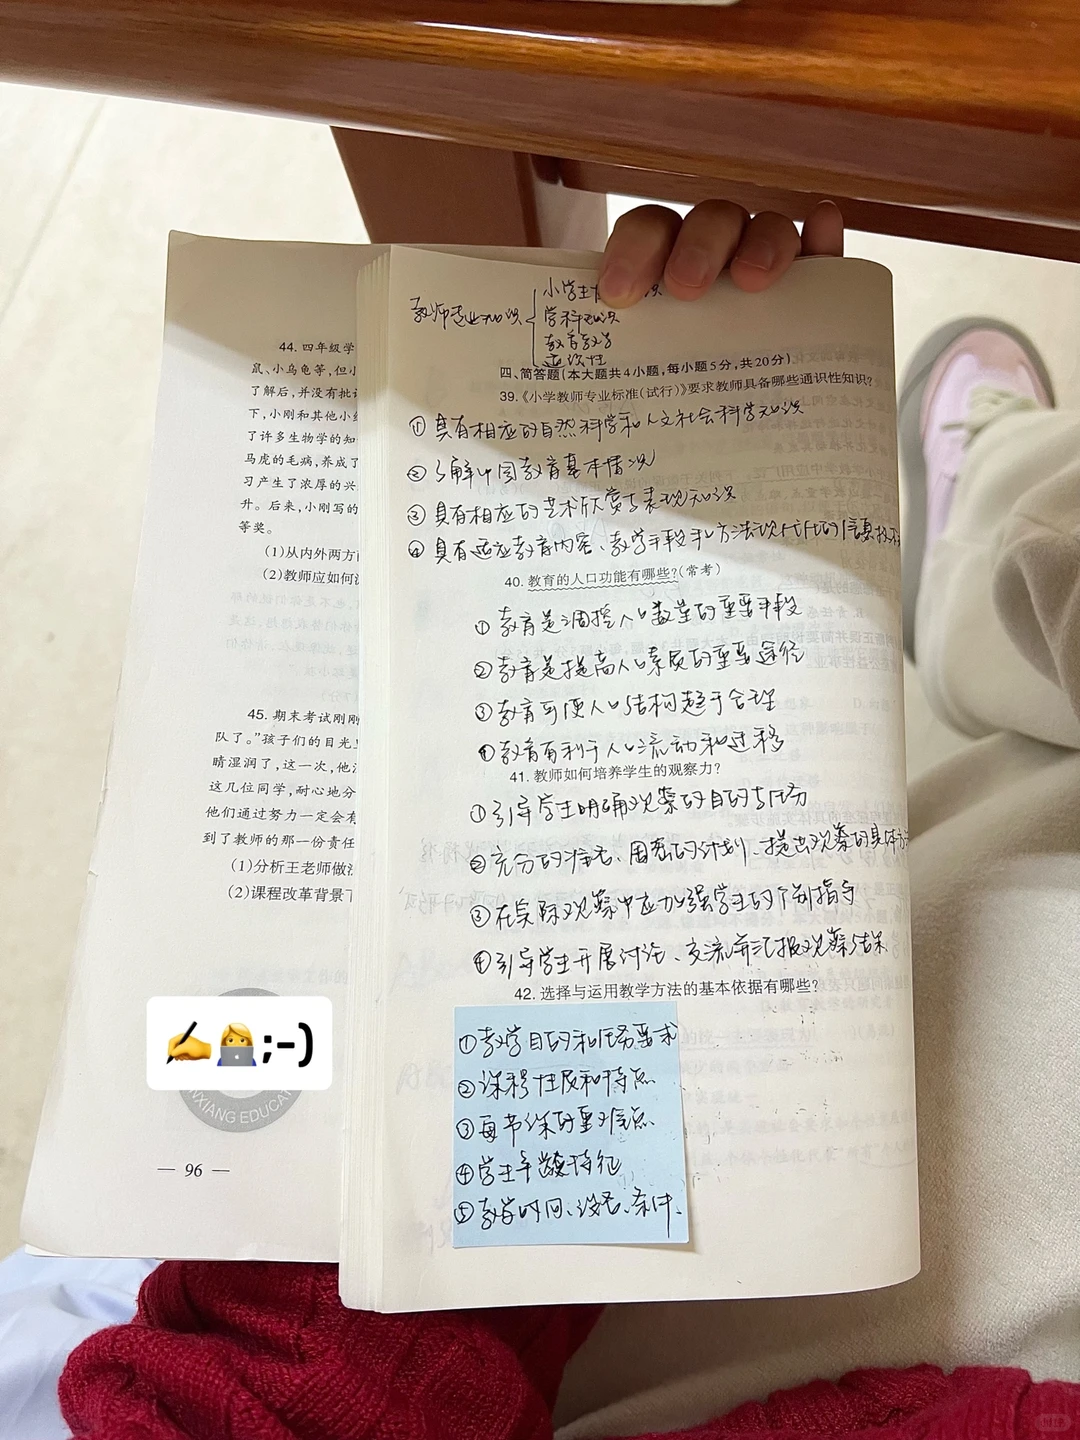 44. 四年级学
鼠、小乌龟等,但小
了解后,并没有批评
下,小刚和其他小组
了许多生物学的知
马虎的毛病,养成了
习产生了浓厚的兴
升。后来,小刚写的
等奖。
(1)从内外两方面
(2)教师应如何
45. 期末考试刚刚
队了。”孩子们的目光
睛湿润了,这一次,他
这几位同学,耐心地分
他们通过努力一定会有
到了教师的那一份责任
(1)分析王老师做
(2)课程改革背景下
NXIANG EDUCA
— 96 —
;-)
教师专业知识
小学生
识
学科知识
教育教学
通识性
四、简答题(本大题共4小题,每小题5分,共20分)
39.《小学教师专业标准(试行)》要求教师具备哪些通识性知识?
① 具有相应的自然科学和人文社会科学知识
② 了解中国教育基本情况
③ 具有相应的艺术欣赏与表现知识
④ 具有适应教育内容、教学手段和方法现代化的信息技术
40. 教育的人口功能有哪些?(常考)
① 教育是调控人口数量的重要手段
② 教育是提高人口素质的重要途径
③ 教育可使人口结构趋于合理
④ 教育有利于人口流动和迁移
41. 教师如何培养学生的观察力?
① 引导学生明确观察的目的与任务
② 充分的准备、周密的计划、提出观察的具体方法
③ 在实际观察中应加强学生的个别指导
④ 引导学生开展讨论、交流并汇报观察结果
42. 选择与运用教学方法的基本依据有哪些?
① 教学目的和任务要求
② 课程性质和特点
③ 每节课的重难点
④ 学生年龄特征
⑤ 教学时间、设备、条件.